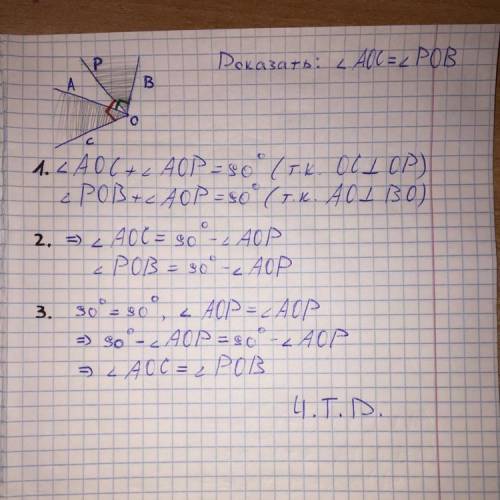 Доказать: ∠AOC = ∠POB
P
A
B
O
C
1. ∠AOC + ∠AOP = 90° (т.к. OC⊥OP)
∠POB + ∠AOP = 90° (т.к. AO⊥BO)
2. ⇒ ∠AOC = 90° - ∠AOP
∠POB = 90° - ∠AOP
3. 90° = 90°, ∠AOP = ∠AOP
⇒ 90° - ∠AOP = 90° - ∠AOP
⇒ ∠AOC = ∠POB
Ч.Т.D.